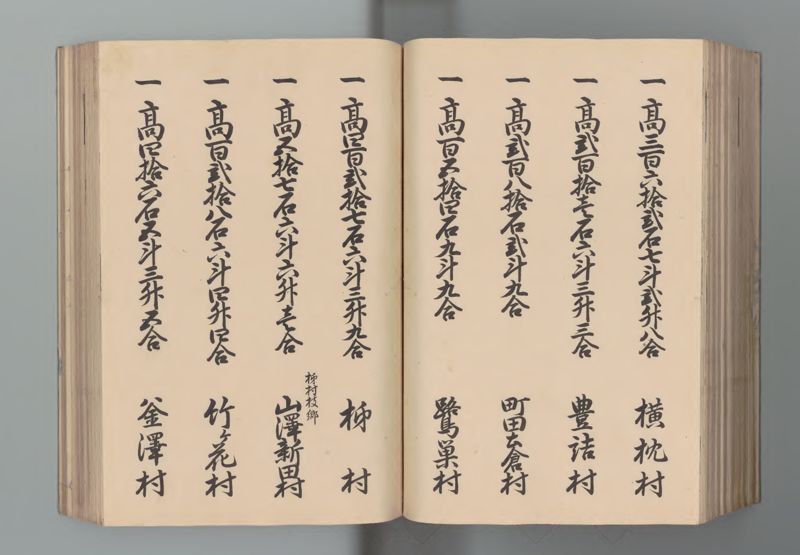 一 高三百六拾弐石七斗弐升八合 横枕村
一 高弐百拾壱石六斗三升三合 豊詰村
一 高弐百八拾石弐斗九合 町田大倉村
一 高百五拾四石九斗九合 鷺巣村
一 高四百弐拾七石六斗三升九合 柹村
一 高五拾七石六斗六升壱合 柹村枝郷 山澤新田村
一 高百弐拾八石六斗四升四合 竹ヶ花村
一 高四拾六石五斗三升五合 釜澤村